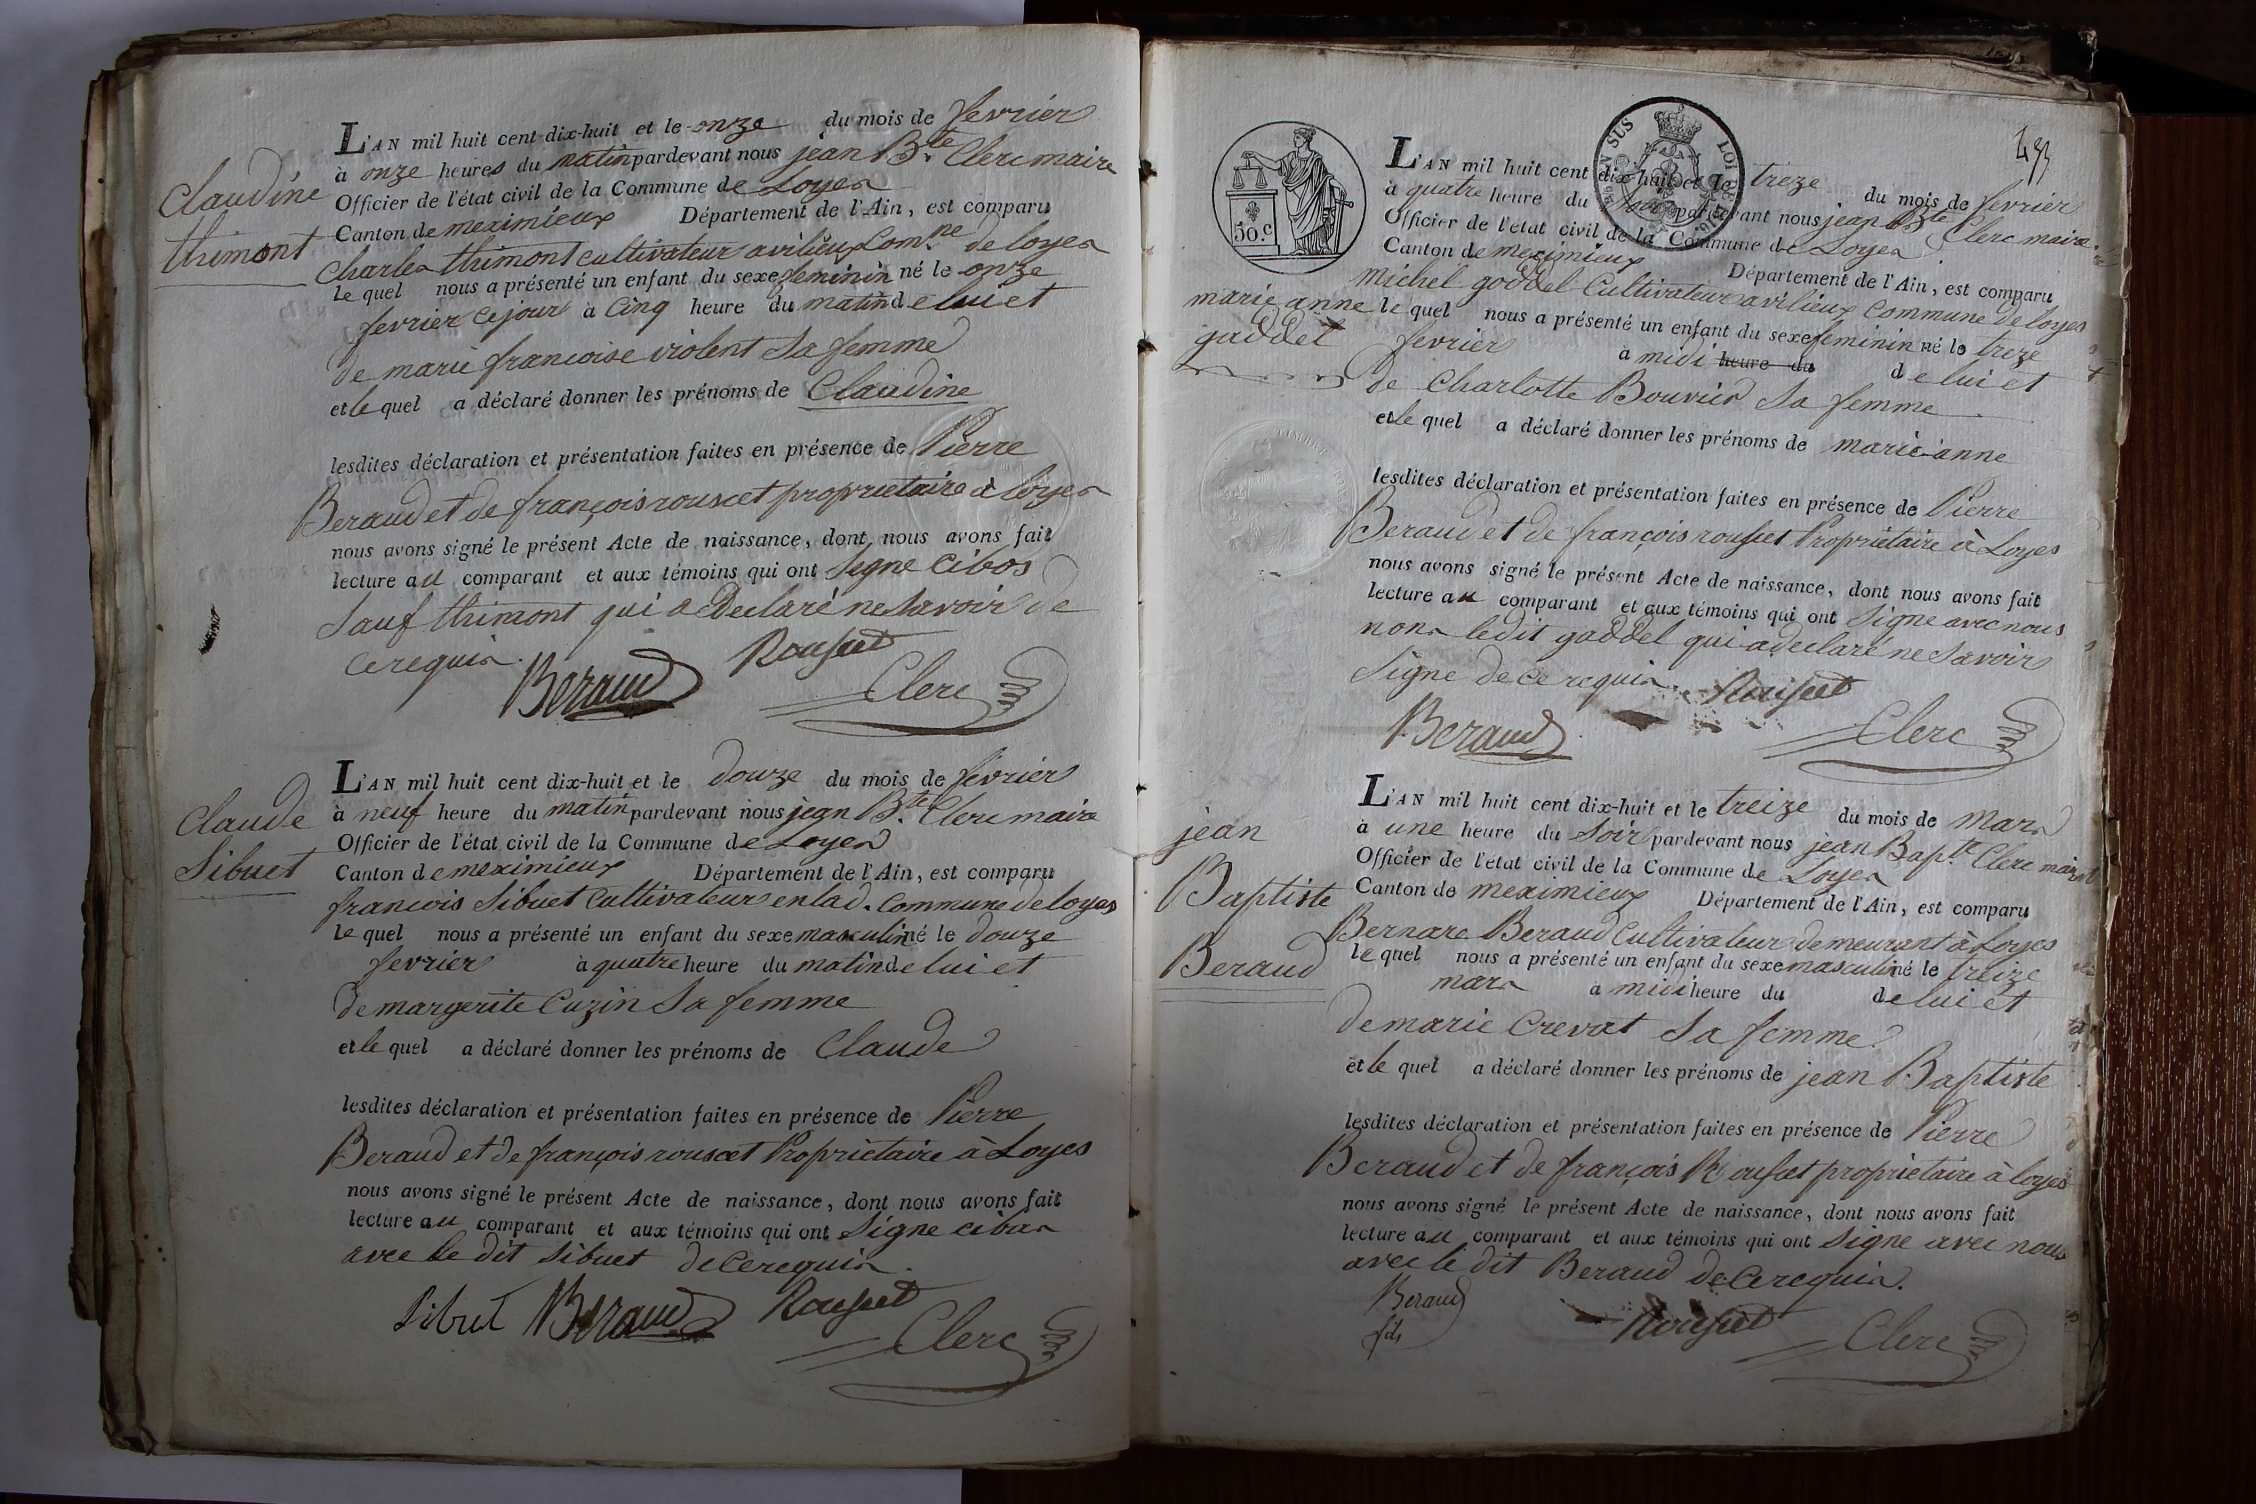 Claudine
thimont
L'AN mil huit cent dix-huit et le onze du mois de fevrier
à onze heures du matin pardevant nous jean B.te Clerc maire
Officier de l'état civil de la Commune de Loyes
Canton de meximieux Département de l'Ain, est comparu
Charles thimont cultivateur a vilieux Com.ne de loyes
le quel nous a présenté un enfant du sexe feminin né le onze
fevrier ce jour à Cinq heure du matin de lui et
de marie francoise violent Sa femme
et le quel a déclaré donner les prénoms de Claudine
lesdites déclaration et présentation faites en présence de Pierre
Beraud et de françois rousset proprietaire à loyes
nous avons signé le présent Acte de naissance, dont nous avons fait
lecture au comparant et aux témoins qui ont Signe
Sauf thimont qui a declaré ne Savoir de
ce requis.
Beraud Rousset Clerc
Claude
Sibuet
L'AN mil huit cent dix-huit et le douze du mois de fevrier
à neuf heure du matin pardevant nous jean B.te Clerc maire
Officier de l'état civil de la Commune de Loyes
Canton de meximieux Département de l'Ain, est comparu
francois Sibuet Cultivateur en lad. Commune de loyes
le quel nous a présenté un enfant du sexe masculin né le douze
fevrier à quatre heure du matin de lui et
de margerite Cuzin Sa femme
et le quel a déclaré donner les prénoms de Claude
lesdites déclaration et présentation faites en présence de Pierre
Beraud et de françois rousset Proprietaire à Loyes
nous avons signé le présent Acte de naissance, dont nous avons fait
lecture au comparant et aux témoins qui ont Signe
avec le dit Sibuet de ce requis.
Sibuet Beraud Rousset
Clerc
50.c
L'AN mil huit cent dix-huit et le treze du mois de fevrier
à quatre heure du Soir pardevant nous jean B.te Clerc maire
Officier de l'état civil de la Commune de Loyes
Canton de meximieux Département de l'Ain, est comparu
michel goddel Cultivateur a vilieux Commune de loyes
marie anne
gaddet
le quel nous a présenté un enfant du sexe feminin né le treze
fevrier à midi heure du de lui et
de Charlotte Bouvier Sa femme
et le quel a déclaré donner les prénoms de marie-anne
lesdites déclaration et présentation faites en présence de Pierre
Beraud et de françois rousset Proprietaire à Loyes
nous avons signé le présent Acte de naissance, dont nous avons fait
lecture au comparant et aux témoins qui ont Signe avec nous
non ledit goddel qui a declaré ne Savoir
Signe de ce requis. Rousset
Beraud Clerc
jean
Baptiste
Beraud
L'AN mil huit cent dix-huit et le treize du mois de mars
à une heure du Soir pardevant nous jean Bap.te Clerc maire
Officier de l'état civil de la Commune de Loyes
Canton de meximieux Département de l'Ain, est comparu
Bernare Beraud Cultivateur demeurant à Loyes
le quel nous a présenté un enfant du sexe masculin né le treize
mars à midi heure du de lui et
de marie Crevat Sa femme
et le quel a déclaré donner les prénoms de jean Baptiste
lesdites déclaration et présentation faites en présence de Pierre
Beraud et de françois Rousset proprietaire à loyes
nous avons signé le présent Acte de naissance, dont nous avons fait
lecture au comparant et aux témoins qui ont Signe avec nous
avec le dit Beraud de ce requis.
Beraud
fils
Rousset Clerc